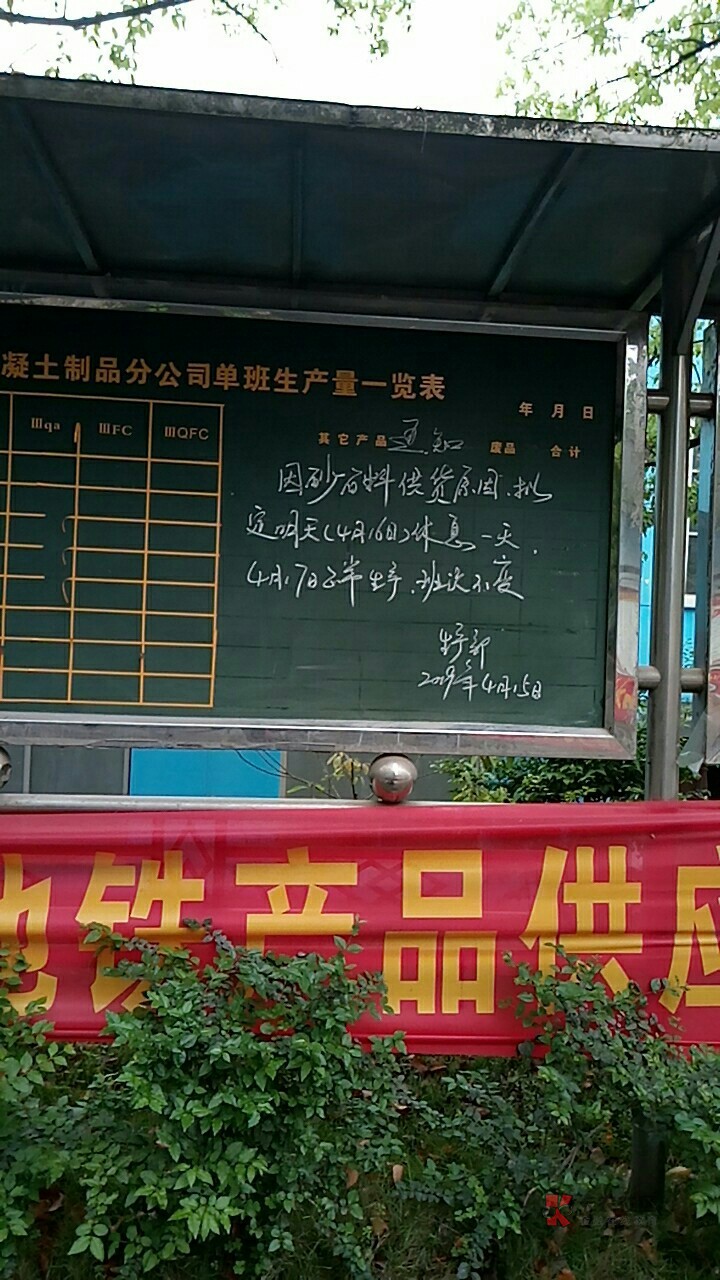 凝土制品分公司单班生产量一览表
年 月 日
Ⅲqa ⅢFC ⅢQFC
其它产品 通知 废品 合计
因砂石料供货原因.拟
定明天(4月16日)休息一天.
4月17日正常生产.班次不变
生产部
2019年4月15日
地铁产品供应